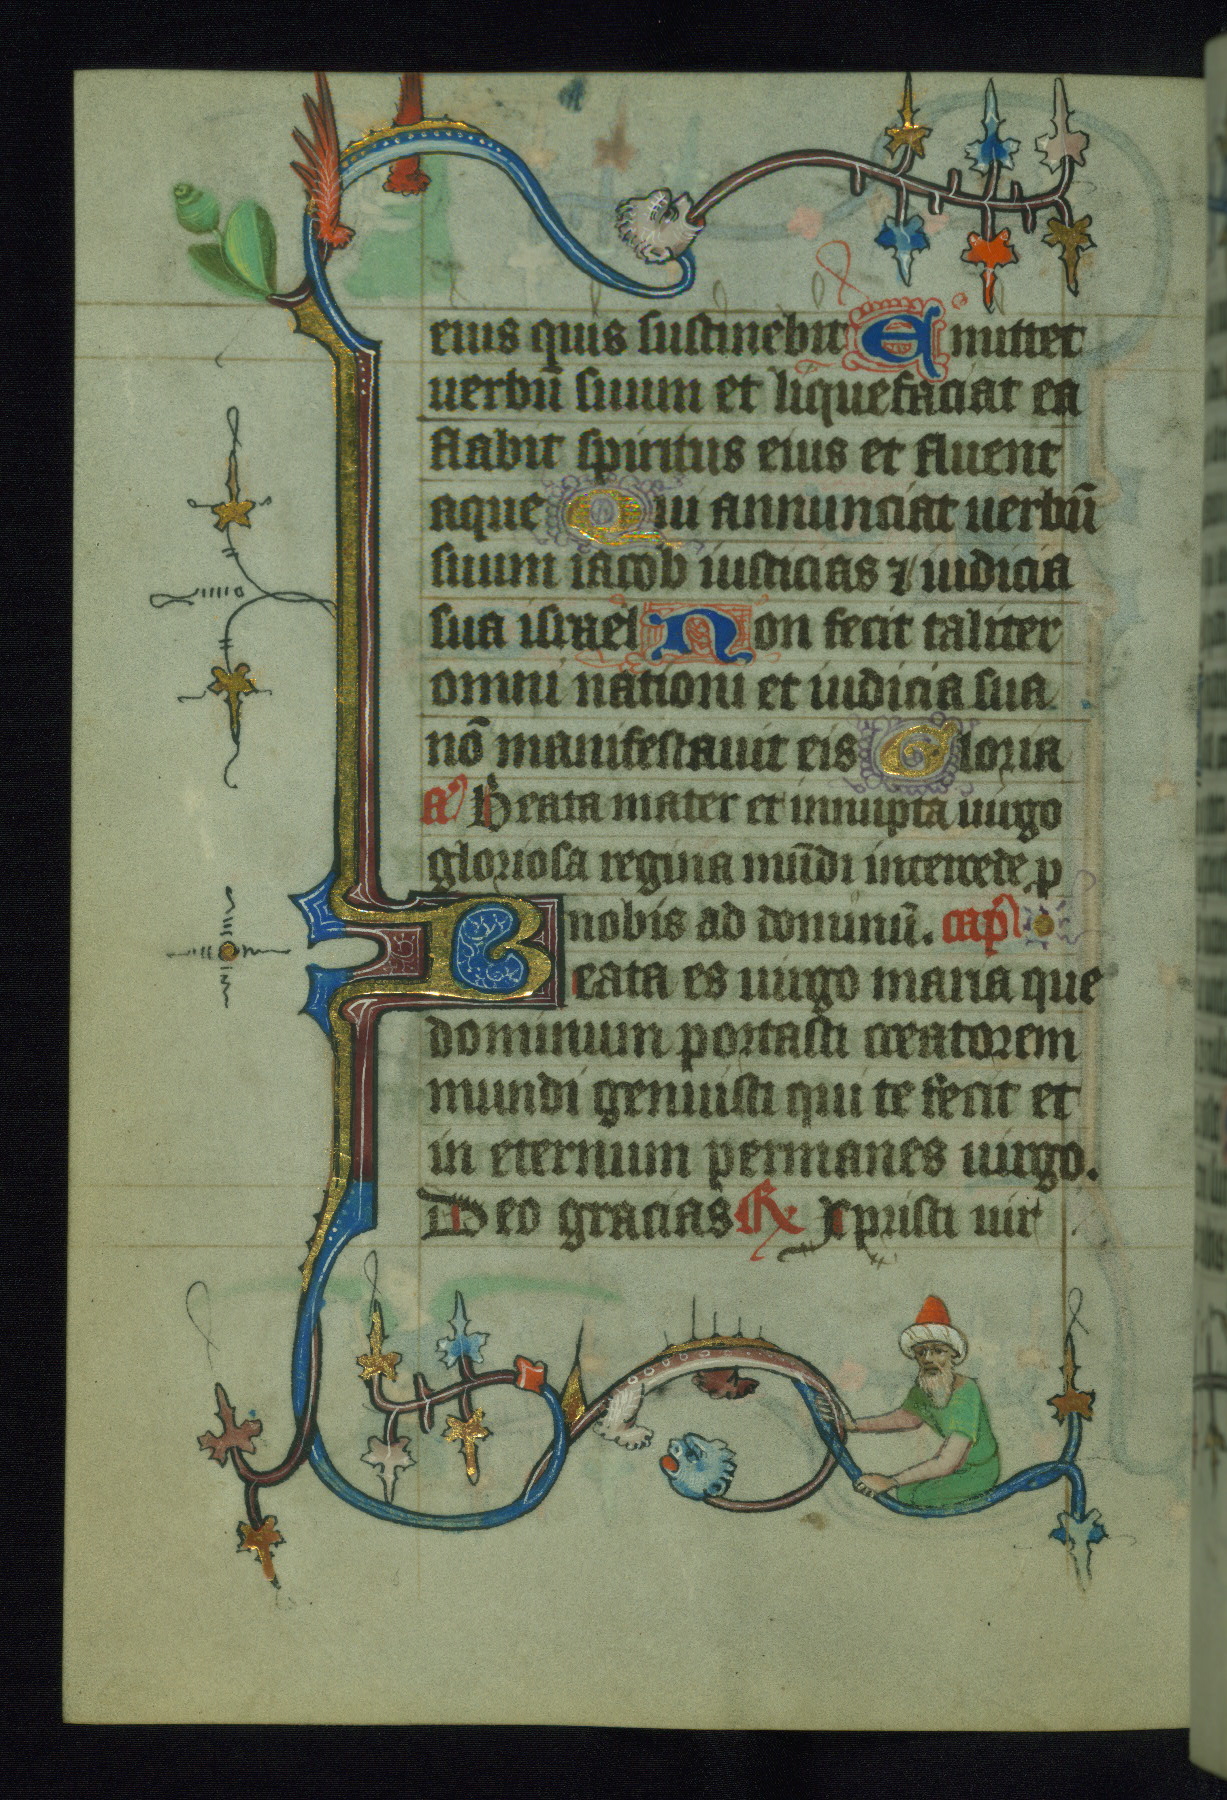 eius quis sustinebit Emittet
uerbū suum et liquefaciat ea
flabit spiritus eius et fluent
aque Qui annunciat uerbū
suum iacob iusticias ⁊ iudicia
sua israel Non fecit taliter
omni nationi et iudicia sua
nō manifestauit eis Gloria
a᷒ Beata mater et innupta uirgo
gloriosa regina mūdi intercede p
nobis ad dominū. capl̄
Beata es uirgo maria que
dominum portasti creatorem
mundi genuisti qui te fecit et
in eternum permanes uirgo.
Deo gracias ℟ Xpristi uir